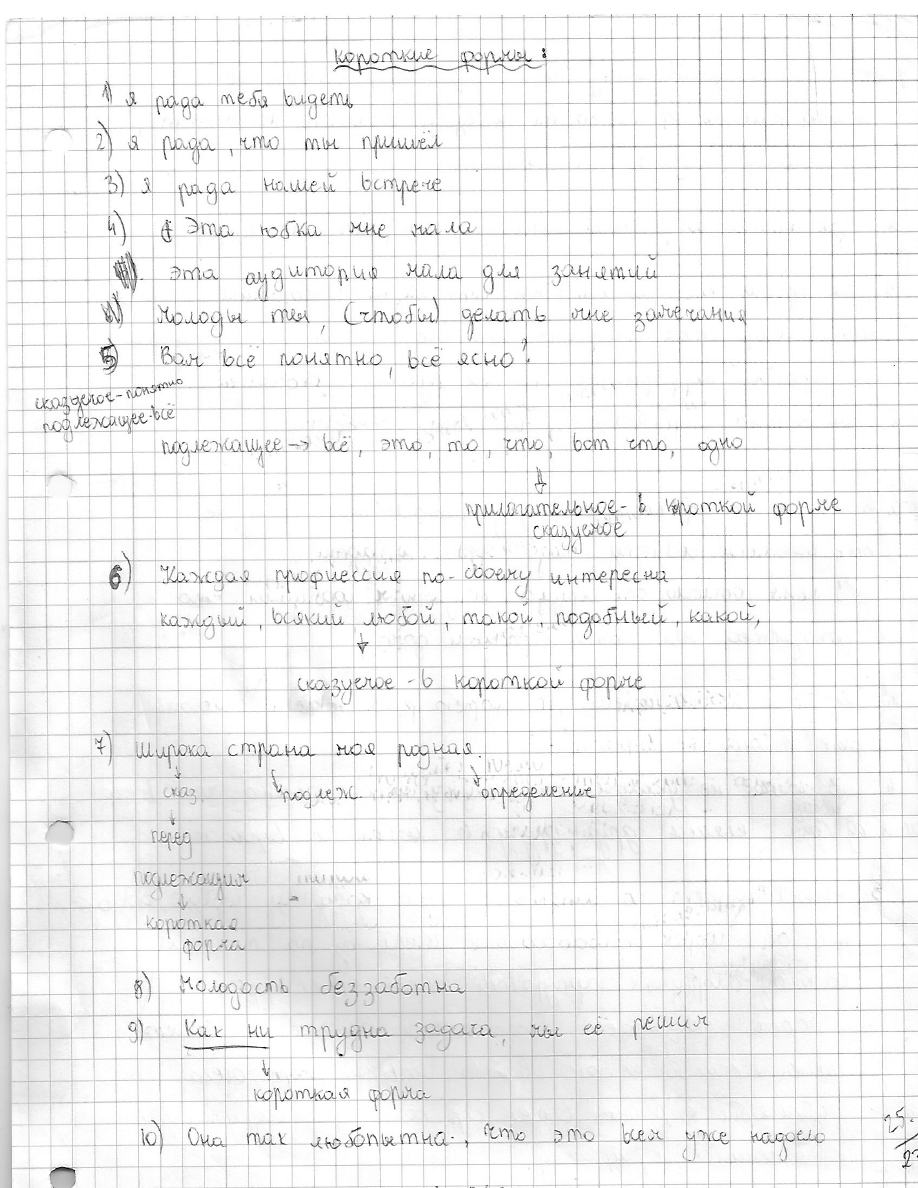 короткие формы:
1) я рада тебя видеть
2) я рада, что ты пришёл
3) я рада нашей встрече
4) Эта юбка мне мала
эта аудитория мала для занятий
молоды ты, (чтобы) делать мне замечания
5 Вам всё понятно, всё ясно?
сказуемое-понятно
подлежащее-всё
подлежащее → всё, это, то, что, вот что, одно
↓
прилагательное- в кроткой форме
сказуемое
6) Каждая профиессия по-своему интересна
каждый, всякий любой, такой, подобный, какой,
↓
сказуемое -в короткой форме
7) Широка страна моя родная.
↓ ↓ ↓
сказ подлеж. определение
↓
перед
подлежащим
↓
короткая
форма
8) Молодость беззаботна
9) Как ни трудна задача, мы её решим
↓
короткая форма
10) Она так любопытна, что это всем уже надоело